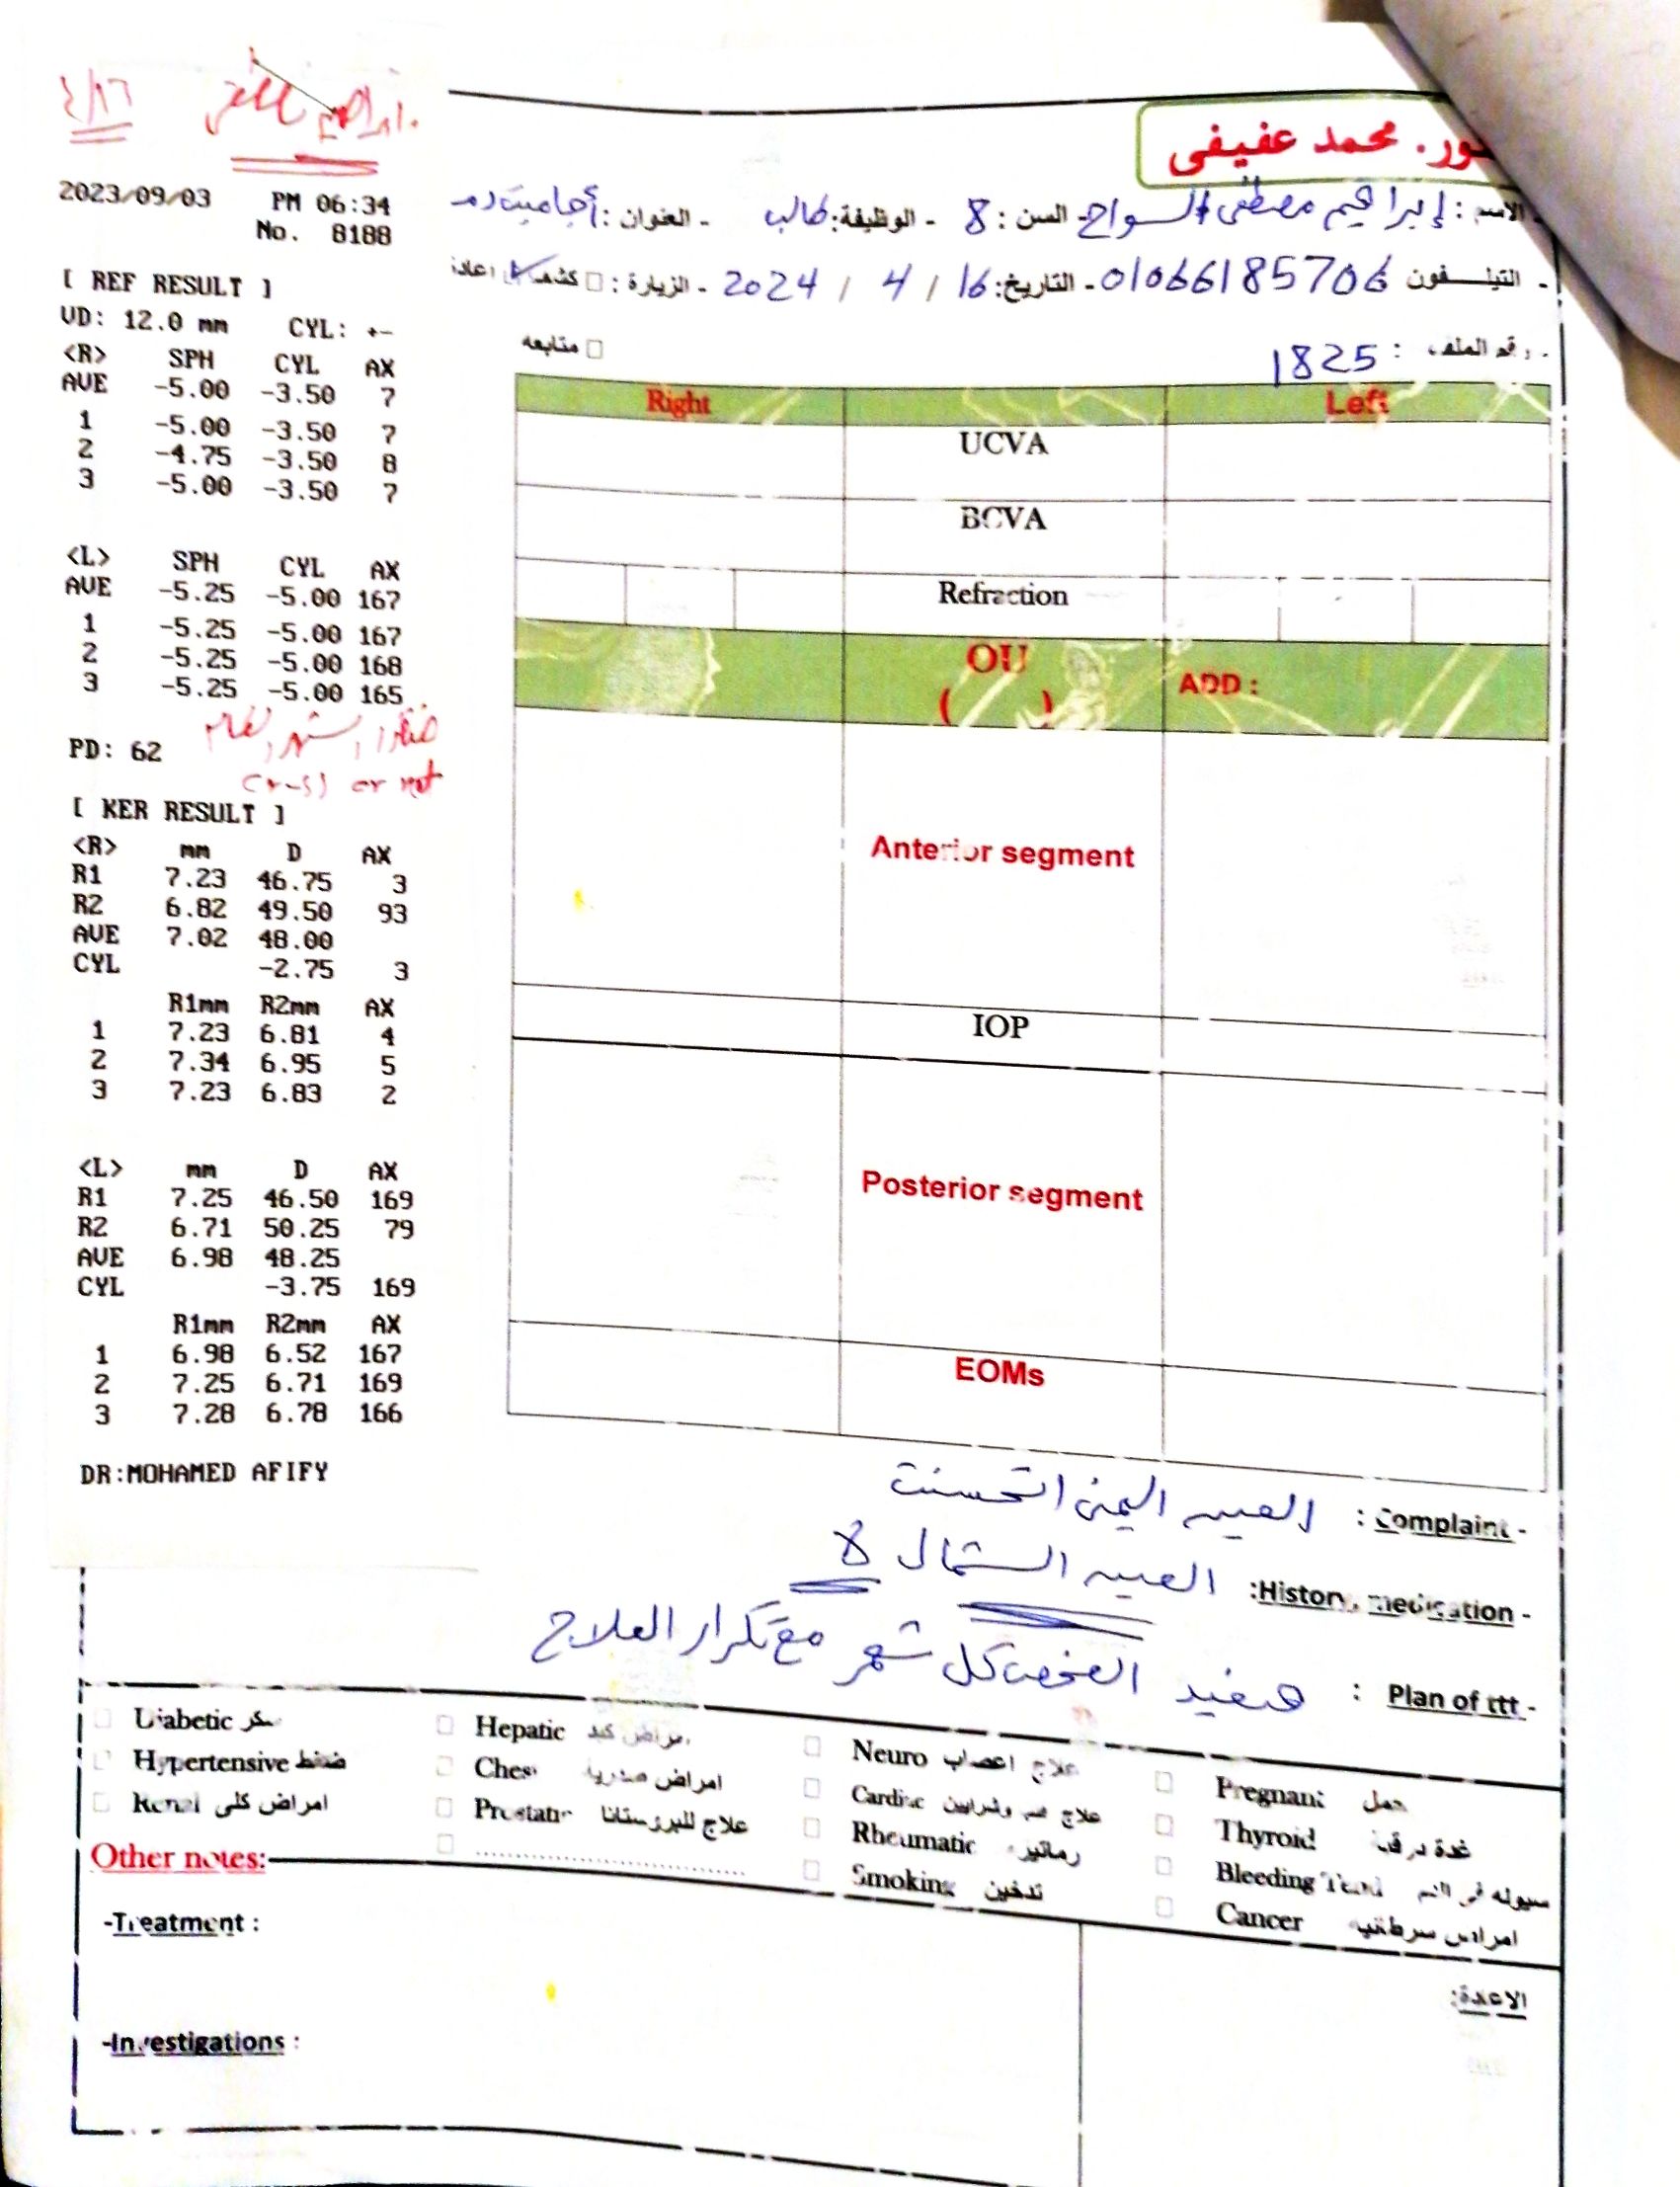 ٤/١٦
2023/09/03 PM 06:34
No. 8188
[ REF RESULT ]
VD: 12.0 mm CYL: +-
<R> SPH CYL AX
AVE -5.00 -3.50 7
1 -5.00 -3.50 7
2 -4.75 -3.50 8
3 -5.00 -3.50 7
<L> SPH CYL AX
AVE -5.25 -5.00 167
1 -5.25 -5.00 167
2 -5.25 -5.00 168
3 -5.25 -5.00 165
PD: 62
or not
[ KER RESULT ]
<R> mm D AX
R1 7.23 46.75 3
R2 6.82 49.50 93
AVE 7.02 48.00
CYL -2.75 3
R1mm R2mm AX
1 7.23 6.81 4
2 7.34 6.95 5
3 7.23 6.83 2
<L> mm D AX
R1 7.25 46.50 169
R2 6.71 50.25 79
AVE 6.98 48.25
CYL -3.75 169
R1mm R2mm AX
1 6.98 6.52 167
2 7.25 6.71 169
3 7.28 6.78 166
DR:MOHAMED AFIFY
محمد عفيفى
الاسم : إبراهيم مصطفى السواح - السن : 8 - الوظيفة: طالب - العنوان :
- التيلفون 01066185706 - التاريخ: 16 / 4 / 2024 - الزيارة : □ كشف اعادة
- رقم الملف : 1825 □ متابعه
Right Left
UCVA
BCVA
Refraction
OU
( ) ADD :
Anterior segment
IOP
Posterior segment
EOMs
- Complaint : العين اليمنى اتحسنت
- History, medication: العين الشمال لا
- Plan of ttt : هنعيد الفحص كل شهر مع تكرار العلاج
□ Diabetic سكر □ Hepatic امراض كبد □ Neuro علاج اعصاب □ Pregnant حمل
□ Hypertensive ضغط □ Chest امراض صدرية □ Cardiac علاج قلب وشرايين □ Thyroid غدة درقية
□ Renal امراض كلى □ Prostatic علاج للبروستاتا □ Rheumatic روماتيزم □ Bleeding Tend سيوله فى الدم
□ .......................... □ Smoking تدخين □ Cancer امراض سرطانيه
Other notes:
-Treatment :
الاعادة:
-Investigations :